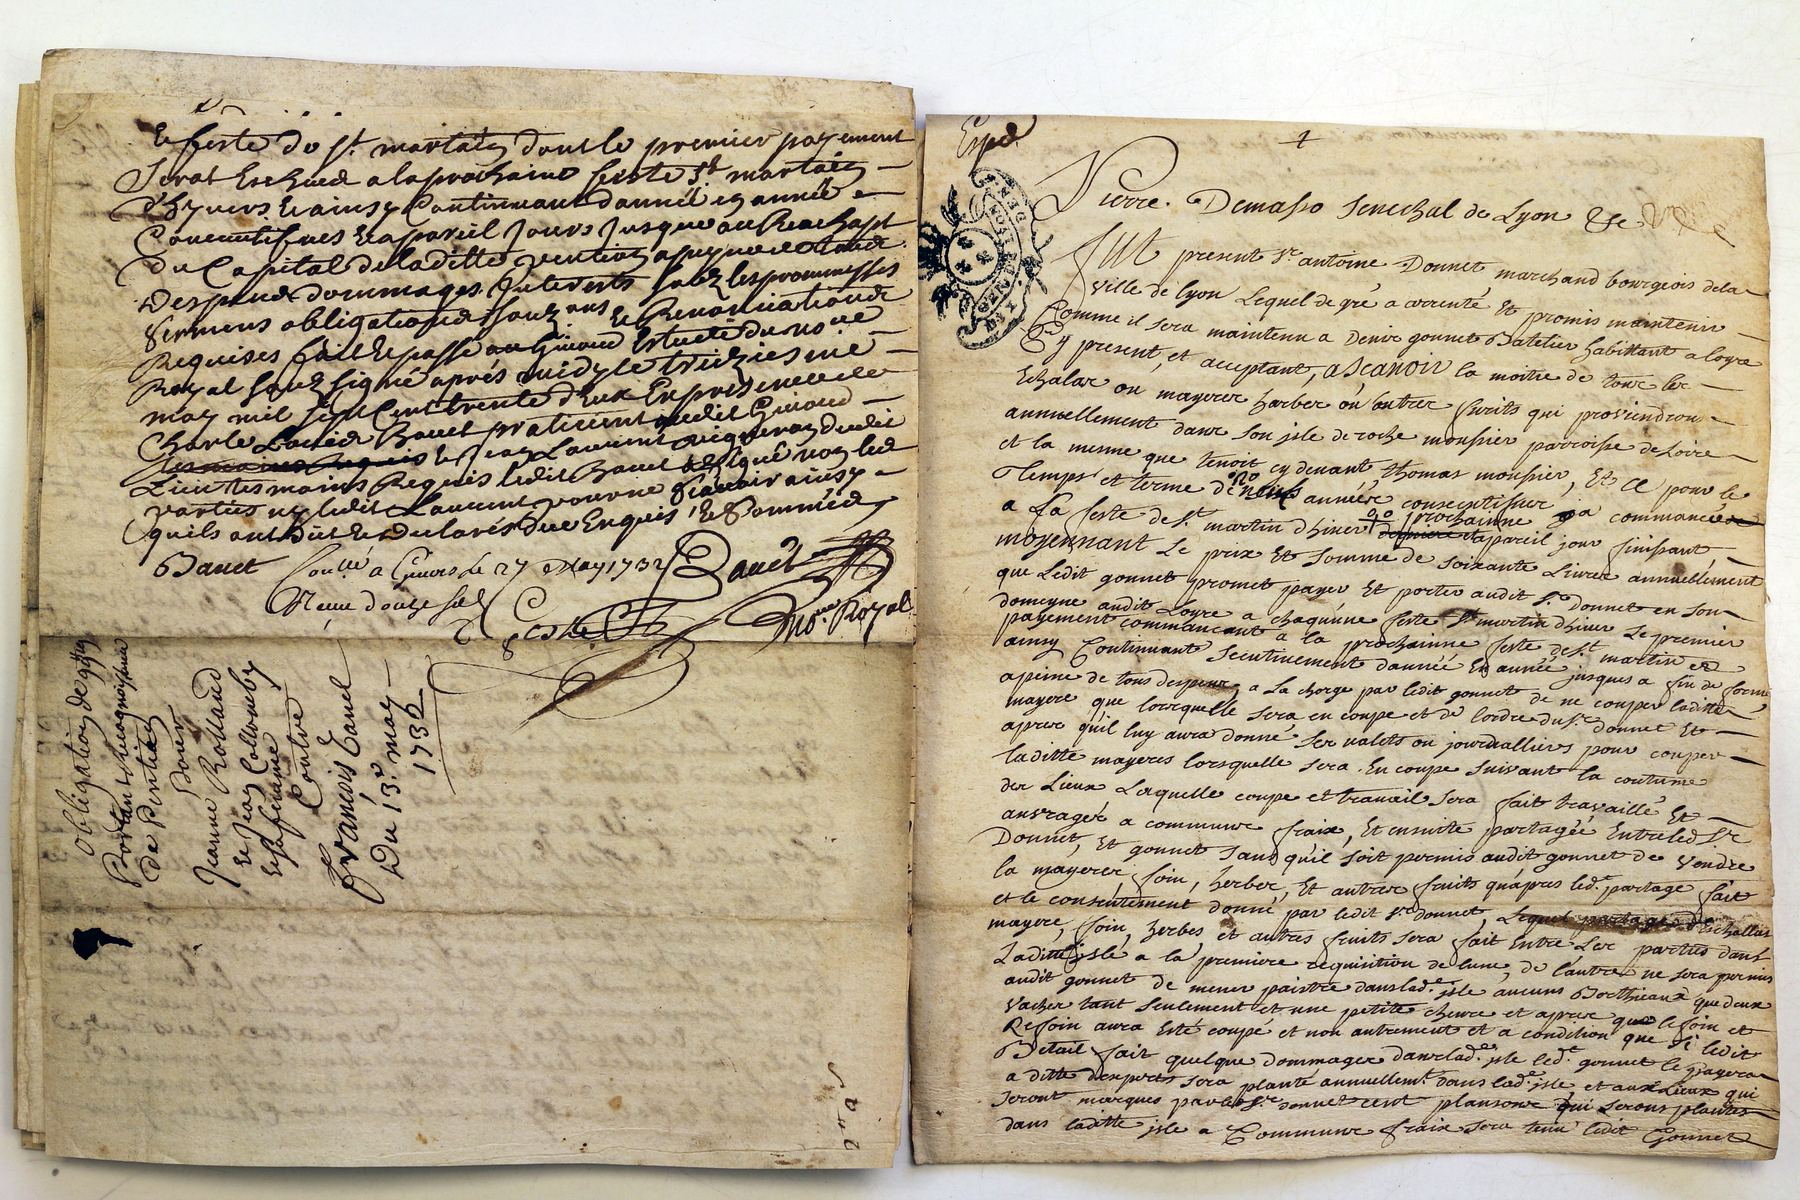 feste de St. martin dont le premier payement
Serat Escheu a la prochaine feste St martin
d'hyvers & ainsy Continuant d'année en année
Consecutifves & a pareil Jours Jusque au Reachapt
du Capital de laditte pention a peyne de tous
Despend dommages Interests soubz les prommesses
Sermens obligations & Renonciations
Requises fait & passé au Givord Estude du no.re
Royal soubz signé aprés midy le treiziesme
may mil sept Cent trente deux En presence de
Charle Bavet praticient dudit Givord
& Jean Laurent vigneron dudit
Lieu tesmoins Requis ledit Bavet a signé non les
parties ny ledit Laurent pour ne sçavoir ainsy
quils ont dit & declarés de ce Enquis & Sommés
Bavet
Conllé a Givors le 27 May 1732
Reçu douze sols
Bavet
no.re Royal
obligation de
Portant
de Pention
Pour
Jeanne Rolland
& Jean Collomby
sa femme
Contre
François
Du 13e. may
1732
Exped.
1
GEN DE LYON
Pierre Demasso Senechal de Lyon &c
FUT present Sr. antoine Donnet marchand bourgeois de la
ville de Lyon Lequel de gré a arrenté Et promis maintenir
Comme il sera maintenu a Denis gonnet Batelier habittant a loyre
Cy present, et acceptant, ASCAVOIR la moitie de tous les
Echalas ou mayeres herbes ou autres fruits qui proviendront
annuellement dans son isle de roche mousier parroisse de Loire
et la mesme que tenoit cy devant, thomas mousier, Et Ce pour le
Temps et terme de neuf années consecutives ja commancées
a La feste de St. martin d'hiver prochainne derniere et a pareil jour finissant
moyennant Le prix Et somme de soixante Livres annuellement
que Ledit gonnet promet payer Et porter audit Sr. Donnet en son
domeyne audit Loyre a chaqúune feste St martin d'hiver Le premier
payement commancant a la prochainne feste de St. martin et
ainsy Continuant secutivement d'année En année jusques a fin de ferme
a peine de tous despens, a La charge par ledit gonnet de ne couper laditte
mayere que lorsquelle sera en coupe et de l'ordre du Sr. donnet Et
apres qu'il luy aura donné ses valets ou journalliers pour couper
laditte mayeres lorsquelle sera En coupe suivant la coutume
des Lieux Laquelle coupe et travail sera fait travaillé Et
auvragés a communs fraix, Et ensuitte partagée Entre led. Sr
Donnet, Et gonnet sans qu'il soit permis audit gonnet de vendre
la mayeres, foin, herbes, Et autres fruits qu'apres led. partage fait
et le consentement donné par ledit Sr. donnet, Lequel partage d'Eschallas
mayere, foin, herbes et autres fruits sera fait Entre Les parties dans
Laditte isle a la premiere requisition de lune, de l'autre ne sera permis
audit gonnet de mener paistre dans lad.e isle aucuns Bestieaux que deux
vaches tant seulement et une petite chevre et apres que le foin et
Refoin aura Esté coupé et non autrement et a condition que Si ledit
Betail fait quelque dommages dans lad.e isle led.t gonnet le payera
a ditte d'experts sera planté annuellemt. dans lad.e isle et aux Lieux qui
seront marqués par le Sr. donnet cent plansons qui serons plantés
dans laditte isle a Communs fraix sera tenu ledit Gonnet